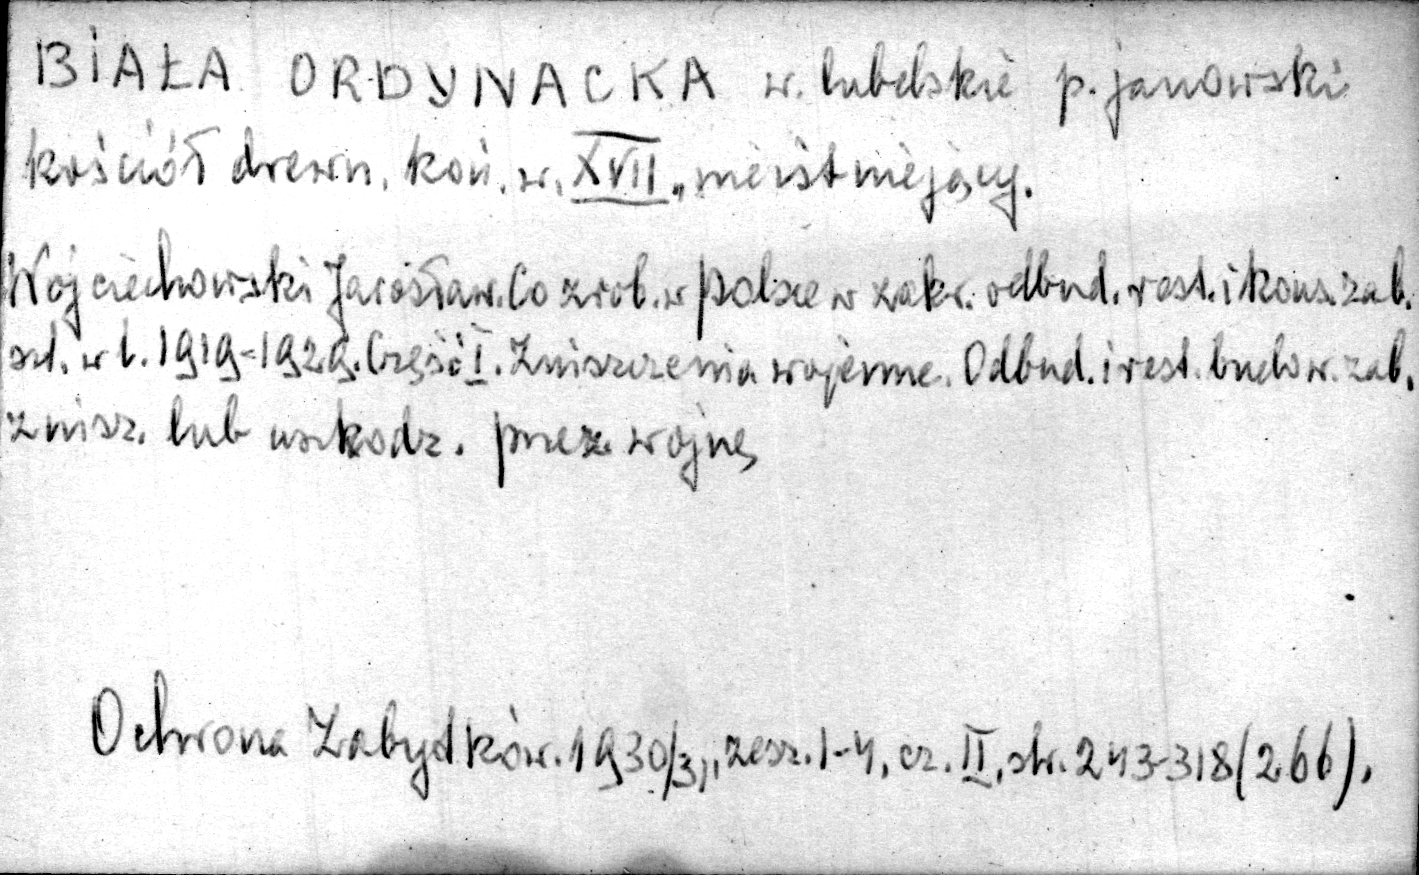 BIAŁA ORDYNACKA w. lubelskie p. janowski
kościół drewn. koń. w. XVII, nieistniejący.
Wojciechowski Jarosław. Co zrob. w Polsce w zakr. odbud. rest. i kons. zab.
szt. w l. 1919-1929. Część I. Zniszczenia wojenne. Odbud. i rest. budow. zab.
znisz. lub uszkodz. przez wojnę
Ochrona Zabytków. 1930/31, zesz. 1-4, cz. II, str. 243-318 (266).